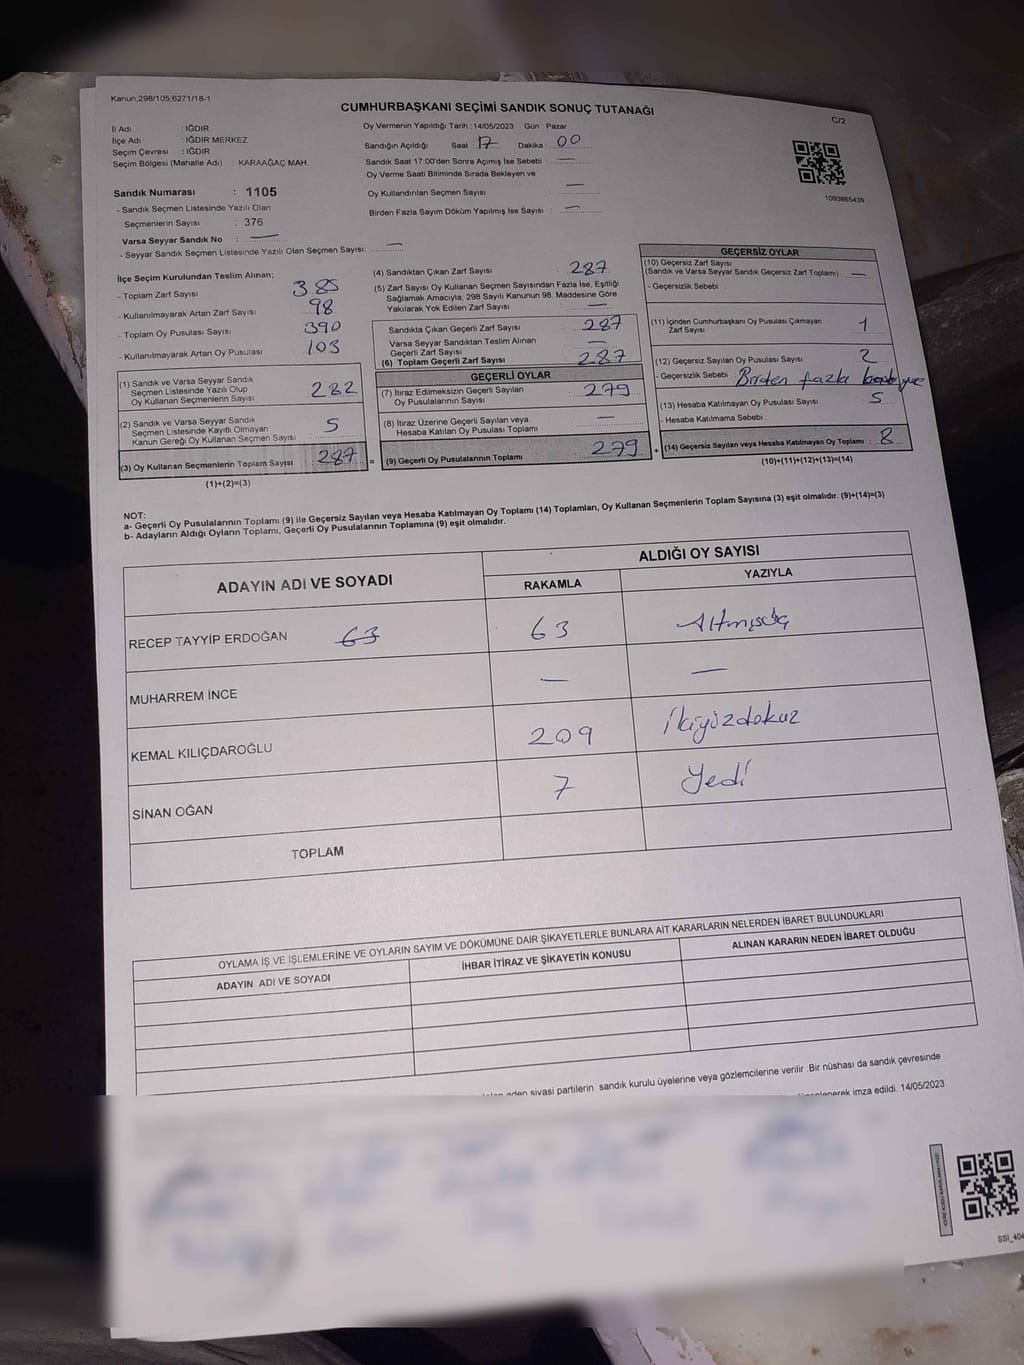 Kanun;298/105;6271/18-1
CUMHURBAŞKANI SEÇİMİ SANDIK SONUÇ TUTANAĞI
C/2
İl Adı : IĞDIR
İlçe Adı : IĞDIR MERKEZ
Seçim Çevresi : IĞDIR
Seçim Bölgesi (Mahalle Adı) : KARAAĞAÇ MAH.
Oy Vermenin Yapıldığı Tarih : 14/05/2023 Gün : Pazar
Sandığın Açıldığı Saat 17 Dakika : 00
Sandık Saat 17:00'den Sonra Açımış İse Sebebi : —
Oy Verme Saati Bitiminde Sırada Bekleyen ve
Oy Kullandırılan Seçmen Sayısı —
Birden Fazla Sayım Döküm Yapılmış İse Sayısı : —
1093865439
Sandık Numarası : 1105
- Sandık Seçmen Listesinde Yazılı Olan
Seçmenlerin Sayısı : 376
Varsa Seyyar Sandık No : —
- Seyyar Sandık Seçmen Listesinde Yazılı Olan Seçmen Sayısı: —
İlçe Seçim Kurulundan Teslim Alınan;
- Toplam Zarf Sayısı 385
- Kullanılmayarak Artan Zarf Sayısı 98
- Toplam Oy Pusulası Sayısı 390
- Kullanılmayarak Artan Oy Pusulası : 103
(1) Sandık ve Varsa Seyyar Sandık
Seçmen Listesinde Yazılı Olup
Oy Kullanan Seçmenlerin Sayısı : 282
(2) Sandık ve Varsa Seyyar Sandık
Seçmen Listesinde Kayıtlı Olmayan
Kanun Gereği Oy Kullanan Seçmen Sayısı : 5
(3) Oy Kullanan Seçmenlerin Toplam Sayısı : 287 =
(1)+(2)=(3)
(4) Sandıktan Çıkan Zarf Sayısı : 287
(5) Zarf Sayısı Oy Kullanan Seçmen Sayısından Fazla İse, Eşitliği
Sağlamak Amacıyla; 298 Sayılı Kanunun 98. Maddesine Göre
Yakılarak Yok Edilen Zarf Sayısı : —
Sandıkta Çıkan Geçerli Zarf Sayısı : 287
Varsa Seyyar Sandıktan Teslim Alınan
Geçerli Zarf Sayısı : —
(6) Toplam Geçerli Zarf Sayısı : 287
GEÇERLİ OYLAR
(7) İtiraz Edilmeksizin Geçerli Sayılan
Oy Pusulalarının Sayısı : 279
(8) İtiraz Üzerine Geçerli Sayılan veya
Hesaba Katılan Oy Pusulası Toplamı : —
(9) Geçerli Oy Pusulalarının Toplamı : 279 +
GEÇERSİZ OYLAR
(10) Geçersiz Zarf Sayısı
(Sandık ve Varsa Seyyar Sandık Geçersiz Zarf Toplamı) : —
- Geçersizlik Sebebi :
(11) İçinden Cumhurbaşkanı Oy Pusulası Çıkmayan
Zarf Sayısı : 1
(12) Geçersiz Sayılan Oy Pusulası Sayısı : 2
- Geçersizlik Sebebi : Birden fazla
(13) Hesaba Katılmayan Oy Pusulası Sayısı : 5
- Hesaba Katılmama Sebebi :
(14) Geçersiz Sayılan veya Hesaba Katılmayan Oy Toplamı : 8
(10)+(11)+(12)+(13)=(14)
NOT:
a- Geçerli Oy Pusulalarının Toplamı (9) ile Geçersiz Sayılan veya Hesaba Katılmayan Oy Toplamı (14) Toplamları, Oy Kullanan Seçmenlerin Toplam Sayısına (3) eşit olmalıdır. (9)+(14)=(3)
b- Adayların Aldığı Oyların Toplamı, Geçerli Oy Pusulalarının Toplamına (9) eşit olmalıdır.
ADAYIN ADI VE SOYADI
ALDIĞI OY SAYISI
RAKAMLA YAZIYLA
RECEP TAYYİP ERDOĞAN 63 63 Altmışüç
MUHARREM İNCE — —
KEMAL KILIÇDAROĞLU 209 İkiyüzdokuz
SİNAN OĞAN 7 Yedi
TOPLAM
OYLAMA İŞ VE İŞLEMLERİNE VE OYLARIN SAYIM VE DÖKÜMÜNE DAİR ŞİKAYETLERLE BUNLARA AİT KARARLARIN NELERDEN İBARET BULUNDUKLARI
ADAYIN ADI VE SOYADI İHBAR İTİRAZ VE ŞİKAYETİN KONUSU ALINAN KARARIN NEDEN İBARET OLDUĞU
eden siyasi partilerin sandık kurulu üyelerine veya gözlemcilerine verilir. Bir nüshası da sandık çevresinde
imza edildi. 14/05/2023